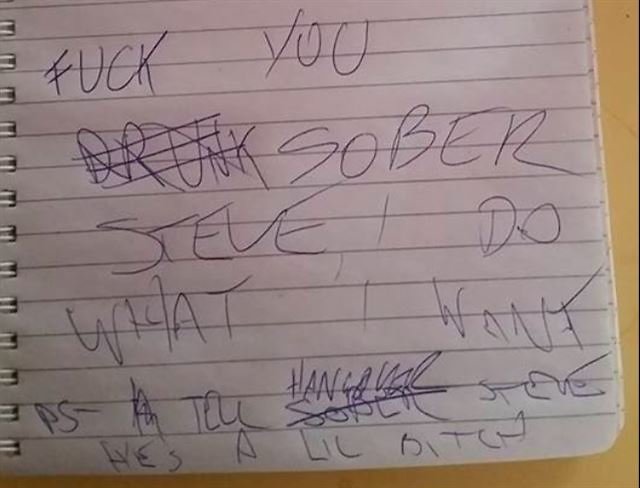 FUCK YOU
DRUNK SOBER
STEVE, I DO
WHAT I WANT
PS- TELL HANGOVER SOBER STEVE
HES A LIL BITCH